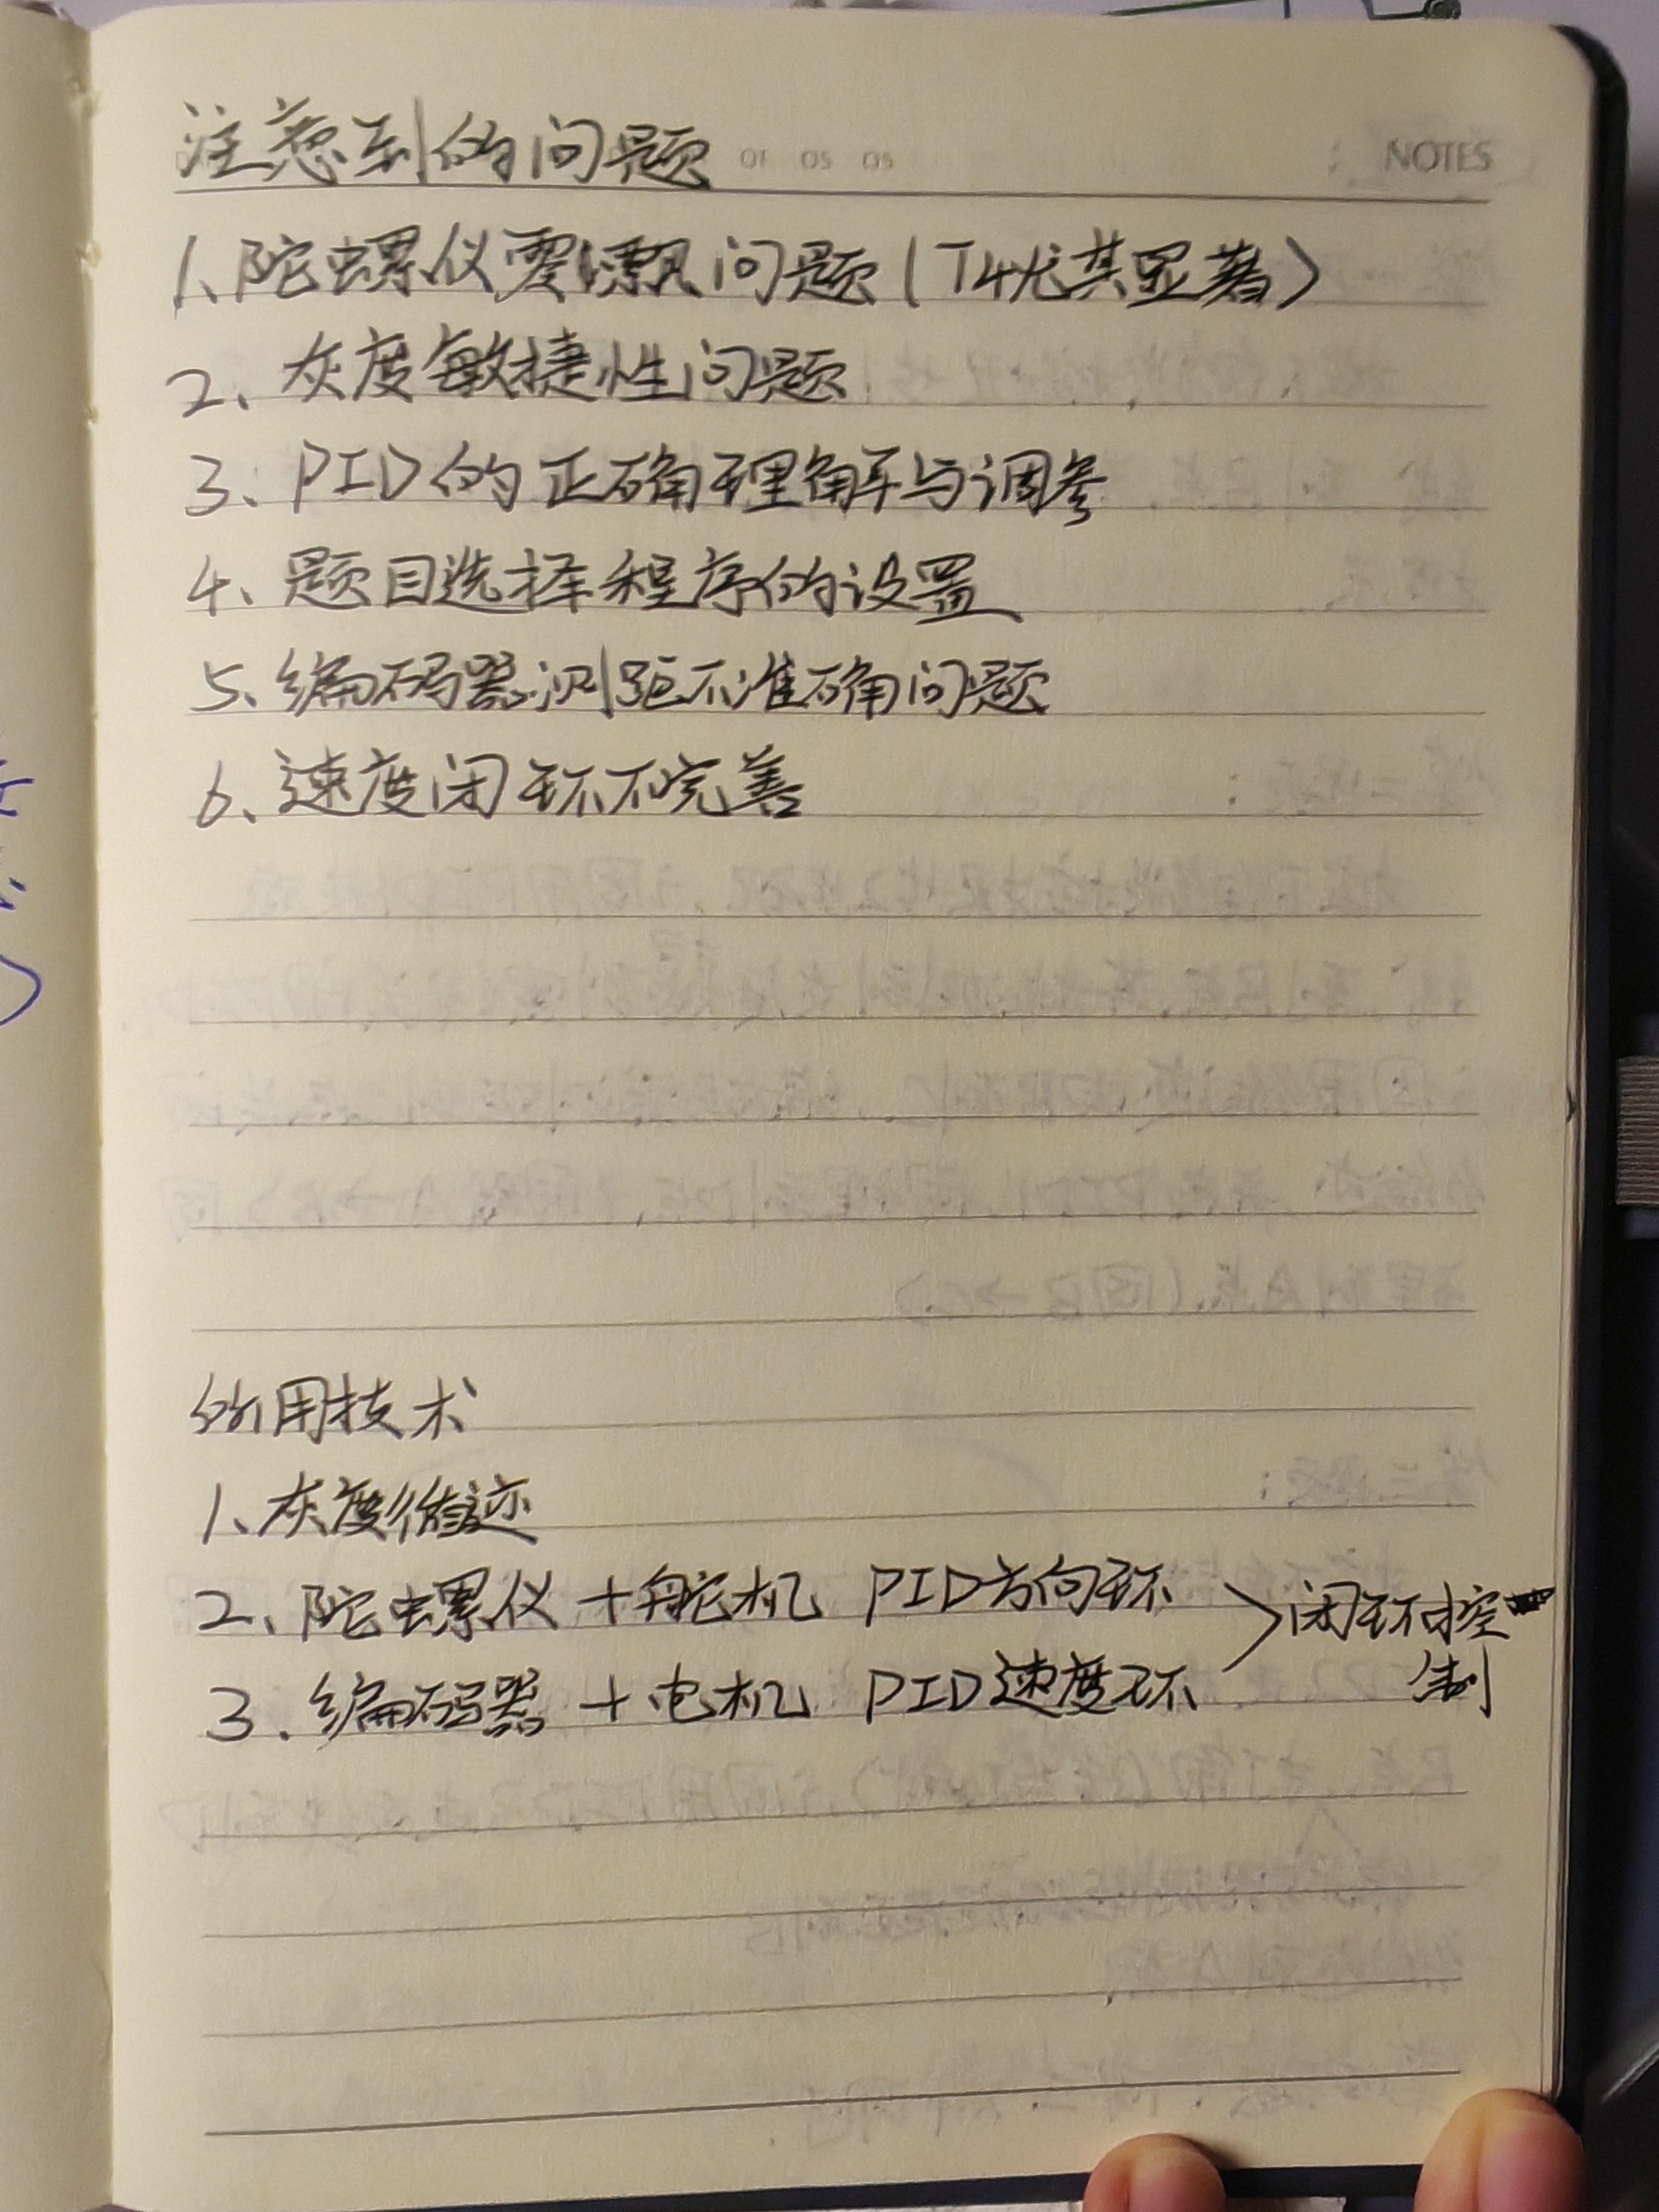 注意到的问题
NOTES
1、陀螺仪零漂问题（T4尤其显著）
2、灰度敏捷性问题
3、PID的正确理解与调参
4、题目选择程序的设置
5、编码器测距不准确问题
6、速度闭环不完善
所用技术
1、灰度循迹
2、陀螺仪+舵机 PID方向环
3.编码器+电机 PID速度环
>闭环控
制